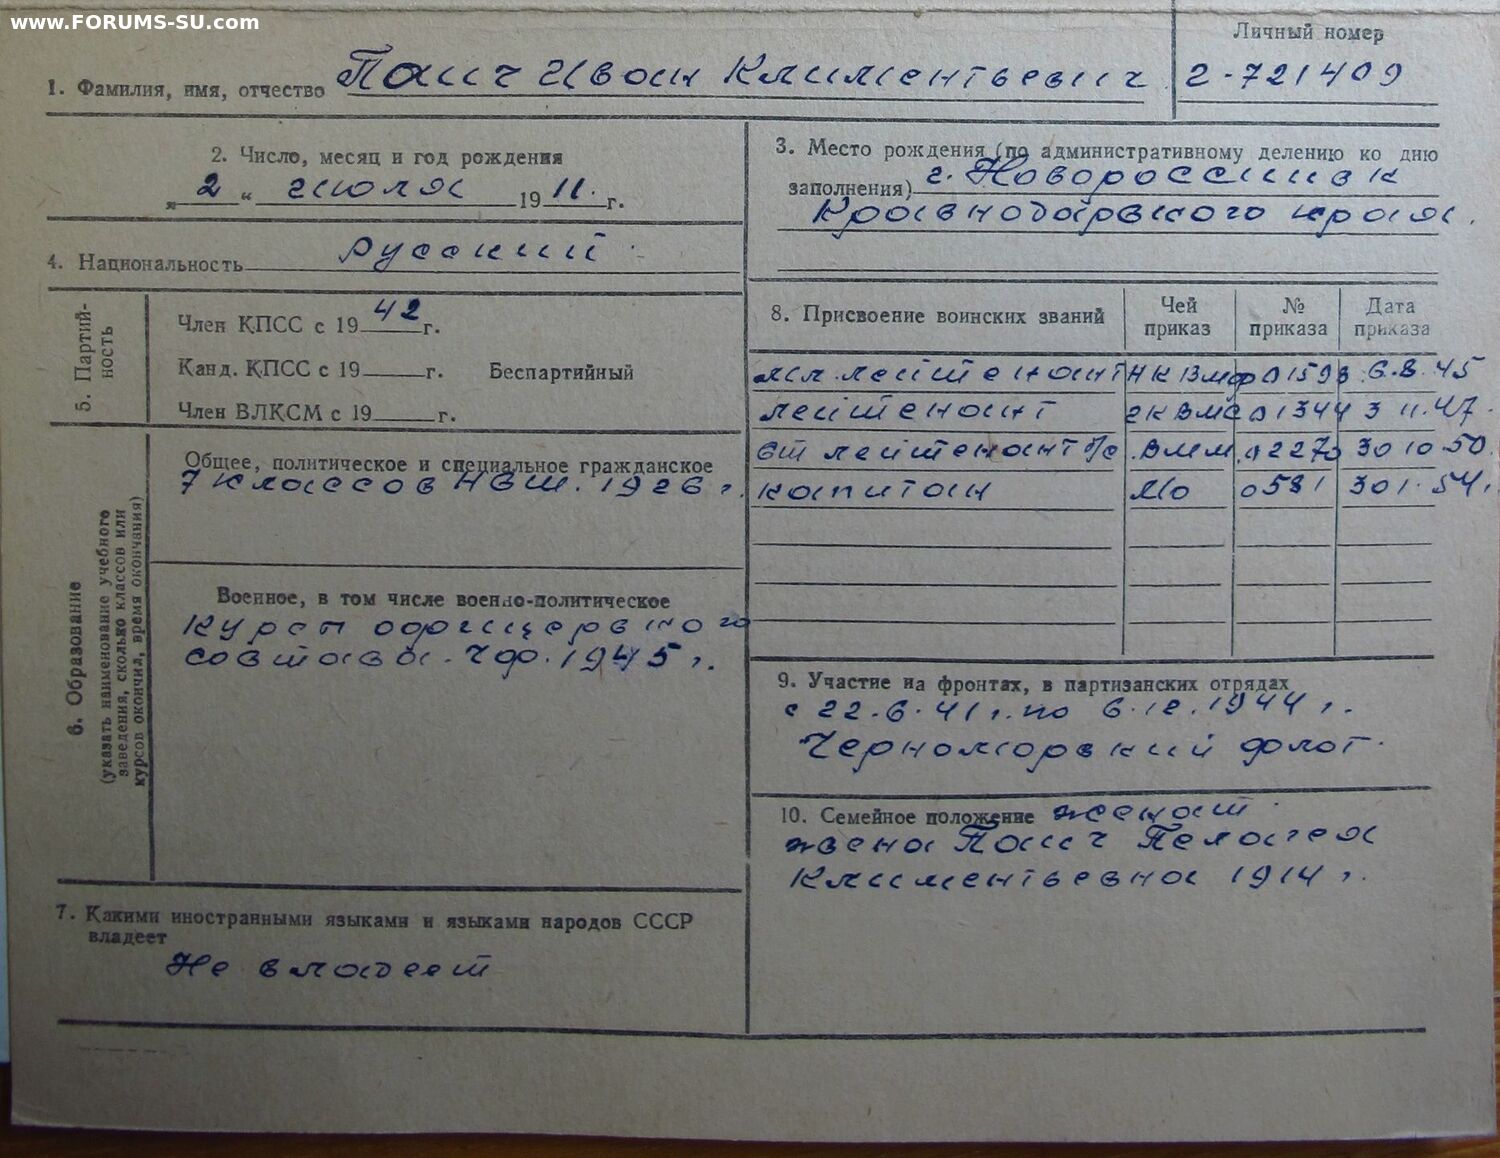 www.FORUMS-SU.com
Личный номер
1. Фамилия, имя, отчество Паич Иван Климентьевич 2-721409
2. Число, месяц и год рождения
„ 2 “ июля 19 11. г.
3. Место рождения (по административному делению ко дню
заполнения) г. Новороссийск
Краснодарского края.
4. Национальность русский
5. Партий-
ность
Член КПСС с 19 42 г.
Канд. КПСС с 19 г. Беспартийный
Член ВЛКСМ с 19 г.
8. Присвоение воинских званий
Чей
приказ
№
приказа
Дата
приказа
мл. лейтенант НКВМФ 01593 6.8.45
лейтенант ГКВМС 01344 3 11.47.
ст лейтенант ВММ 02270 30 10 50.
капитан МО 0581 30 1. 54 г.
6. Образование
(указать наименование учебного
заведения, сколько классов или
курсов окончил, время окончания)
Общее, политическое и специальное гражданское
7 классов НВШ. 1926 г.
Военное, в том числе военно-политическое
курсы офицерского
состава. ЧФ. 1945 г.
9. Участие на фронтах, в партизанских отрядах
с 22.6.41 г. по 6.12.1944 г.
Черноморский флот.
10. Семейное положение женат.
жена Паич Пелагея
Климентьевна 1914 г.
7. Какими иностранными языками и языками народов СССР
владеет
Не владеет